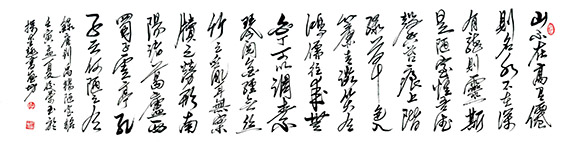 山不在高有僊
則名水不在深
有龍則靈斯
是陋室惟吾德
馨苔痕上階
綠草色入
簾青談笑有
鴻儒往來無
白丁可以調素
琴閱金經無絲
竹之亂耳無案
牘之勞形南
陽諸葛廬西
蜀子雲亭孔
子云何陋之有
錄唐劉禹錫陋室銘